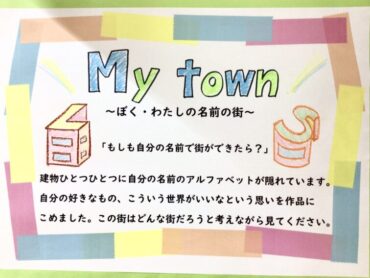 My town
～ぼく・わたしの名前の街～
「もしも自分の名前で街ができたら？」
建物ひとつひとつに自分の名前のアルファベットが隠れています。
自分の好きなもの、こういう世界がいいなという思いを作品に
こめました。この街はどんな街だろうと考えながら見てください。